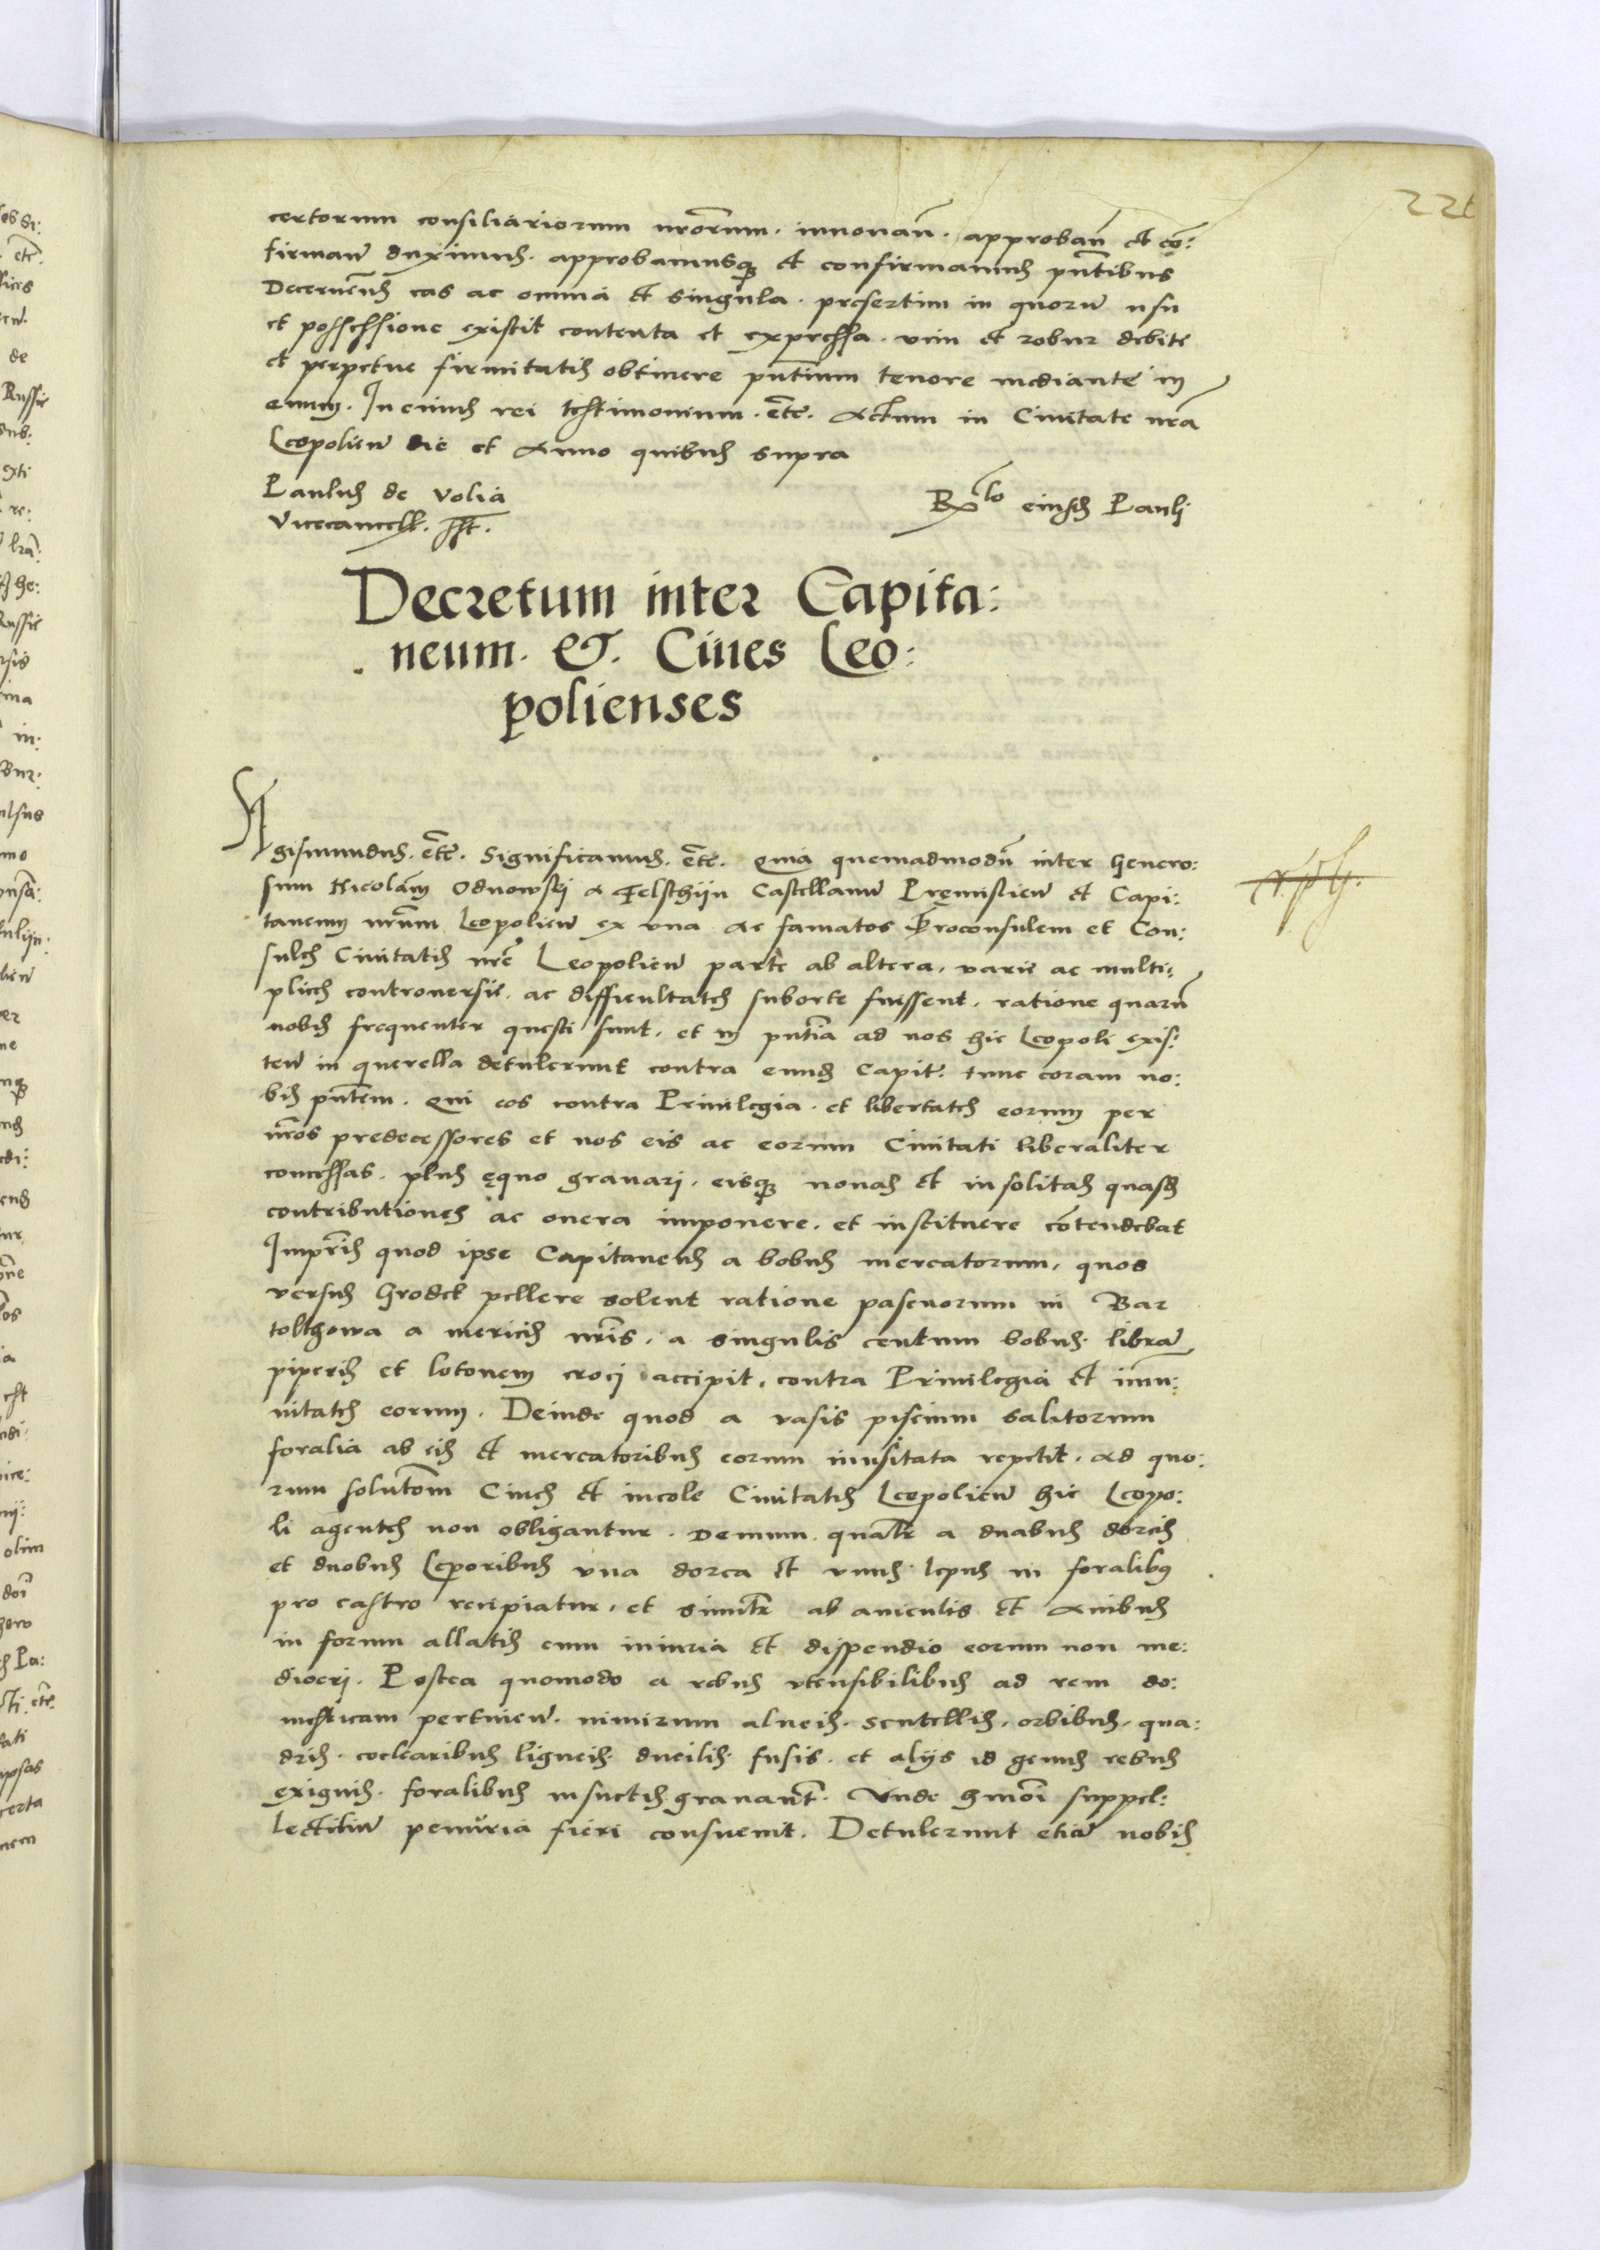 221
certorum consiliariorum nrorum. innouan. approban et co:
firman duximus. approbamusq et confirmamus pntibus
Decernens eas ac omnia et singula. presertim in quorum usu
et possessione existit contenta et expressa. vim et robur debite
et perpetue firmitatis obtinere pntium tenore mediante in
euum. In cuius rei testimonium. etc. Actum in Ciuitate nra
Leopolien die et Anno quibus supra
Paulus de Volia
Vicecancell. sst.
Rlo eiusd Pauli
Decretum inter Capita:
neum. & Ciues Leo:
polienses
Sigismundus. etc. Significamus. etc. Quia quemadmodu inter Genero:
sum Nicolaum Odnowskj a Felschtijn Castellanu Premislien et Capi:
taneum nrum Leopolien ex vna Ac famatos Proconsulem et Con:
sules Ciuitatis nre Leopolien parte ab altera, varie ac multi:
plices controuersie. ac difficultates suborte fuissent. ratione quaru
nobis frequenter questi sunt. et in pntia ad nos hic Leopoli exis:
ten in querella detulerunt contra eund Capit: tunc coram no:
bis pntem. Qui eos contra Priuilegia. et libertates eorum per
nros predecessores et nos eis ac eorum Ciuitati liberaliter
concessas. plus equo grauari. eisq nouas et insolitas quasd
contributiones ac onera imponere. et instituere contendebat
Impris quod ipse Capitaneus a bobus mercatorum, quos
versus Grodek pellere solent ratione pascuorum in Bar
tolthowa a mericis nris, a singulis centum bobus. libra
piperis et lotonem croci accipit, contra Priuilegia et imu:
nitates eorum. Deinde quod a vasis piscium salitorum
foralia ab eis et mercatoribus eorum inusitata repetit. Ad quo:
rum solutom Ciues et incole Ciuitatis Leopolien hic Leopo:
li agentes non obligantur. Demum qualr a duabus dorcis
et duobus Leporibus vna dorca et vnus lepus in foralibus
pro castro recipiatur, et similr ab auiculis et Auibus
in forum allatis cum iniuria et dispendio eorum non me:
diocri. Postea quomodo a rebus vtensibilibus ad rem do:
mesticam pertinen. nimirum alueis. scutellis. orbibus. qua:
dris. coclearibus ligneis. ducilis. fusis. et alijs id genus rebus
exiguis. foralibus insuetis grauant. Vnde hmoi suppel:
lectiliu penuria fieri consueuit. Detulerunt etia nobis